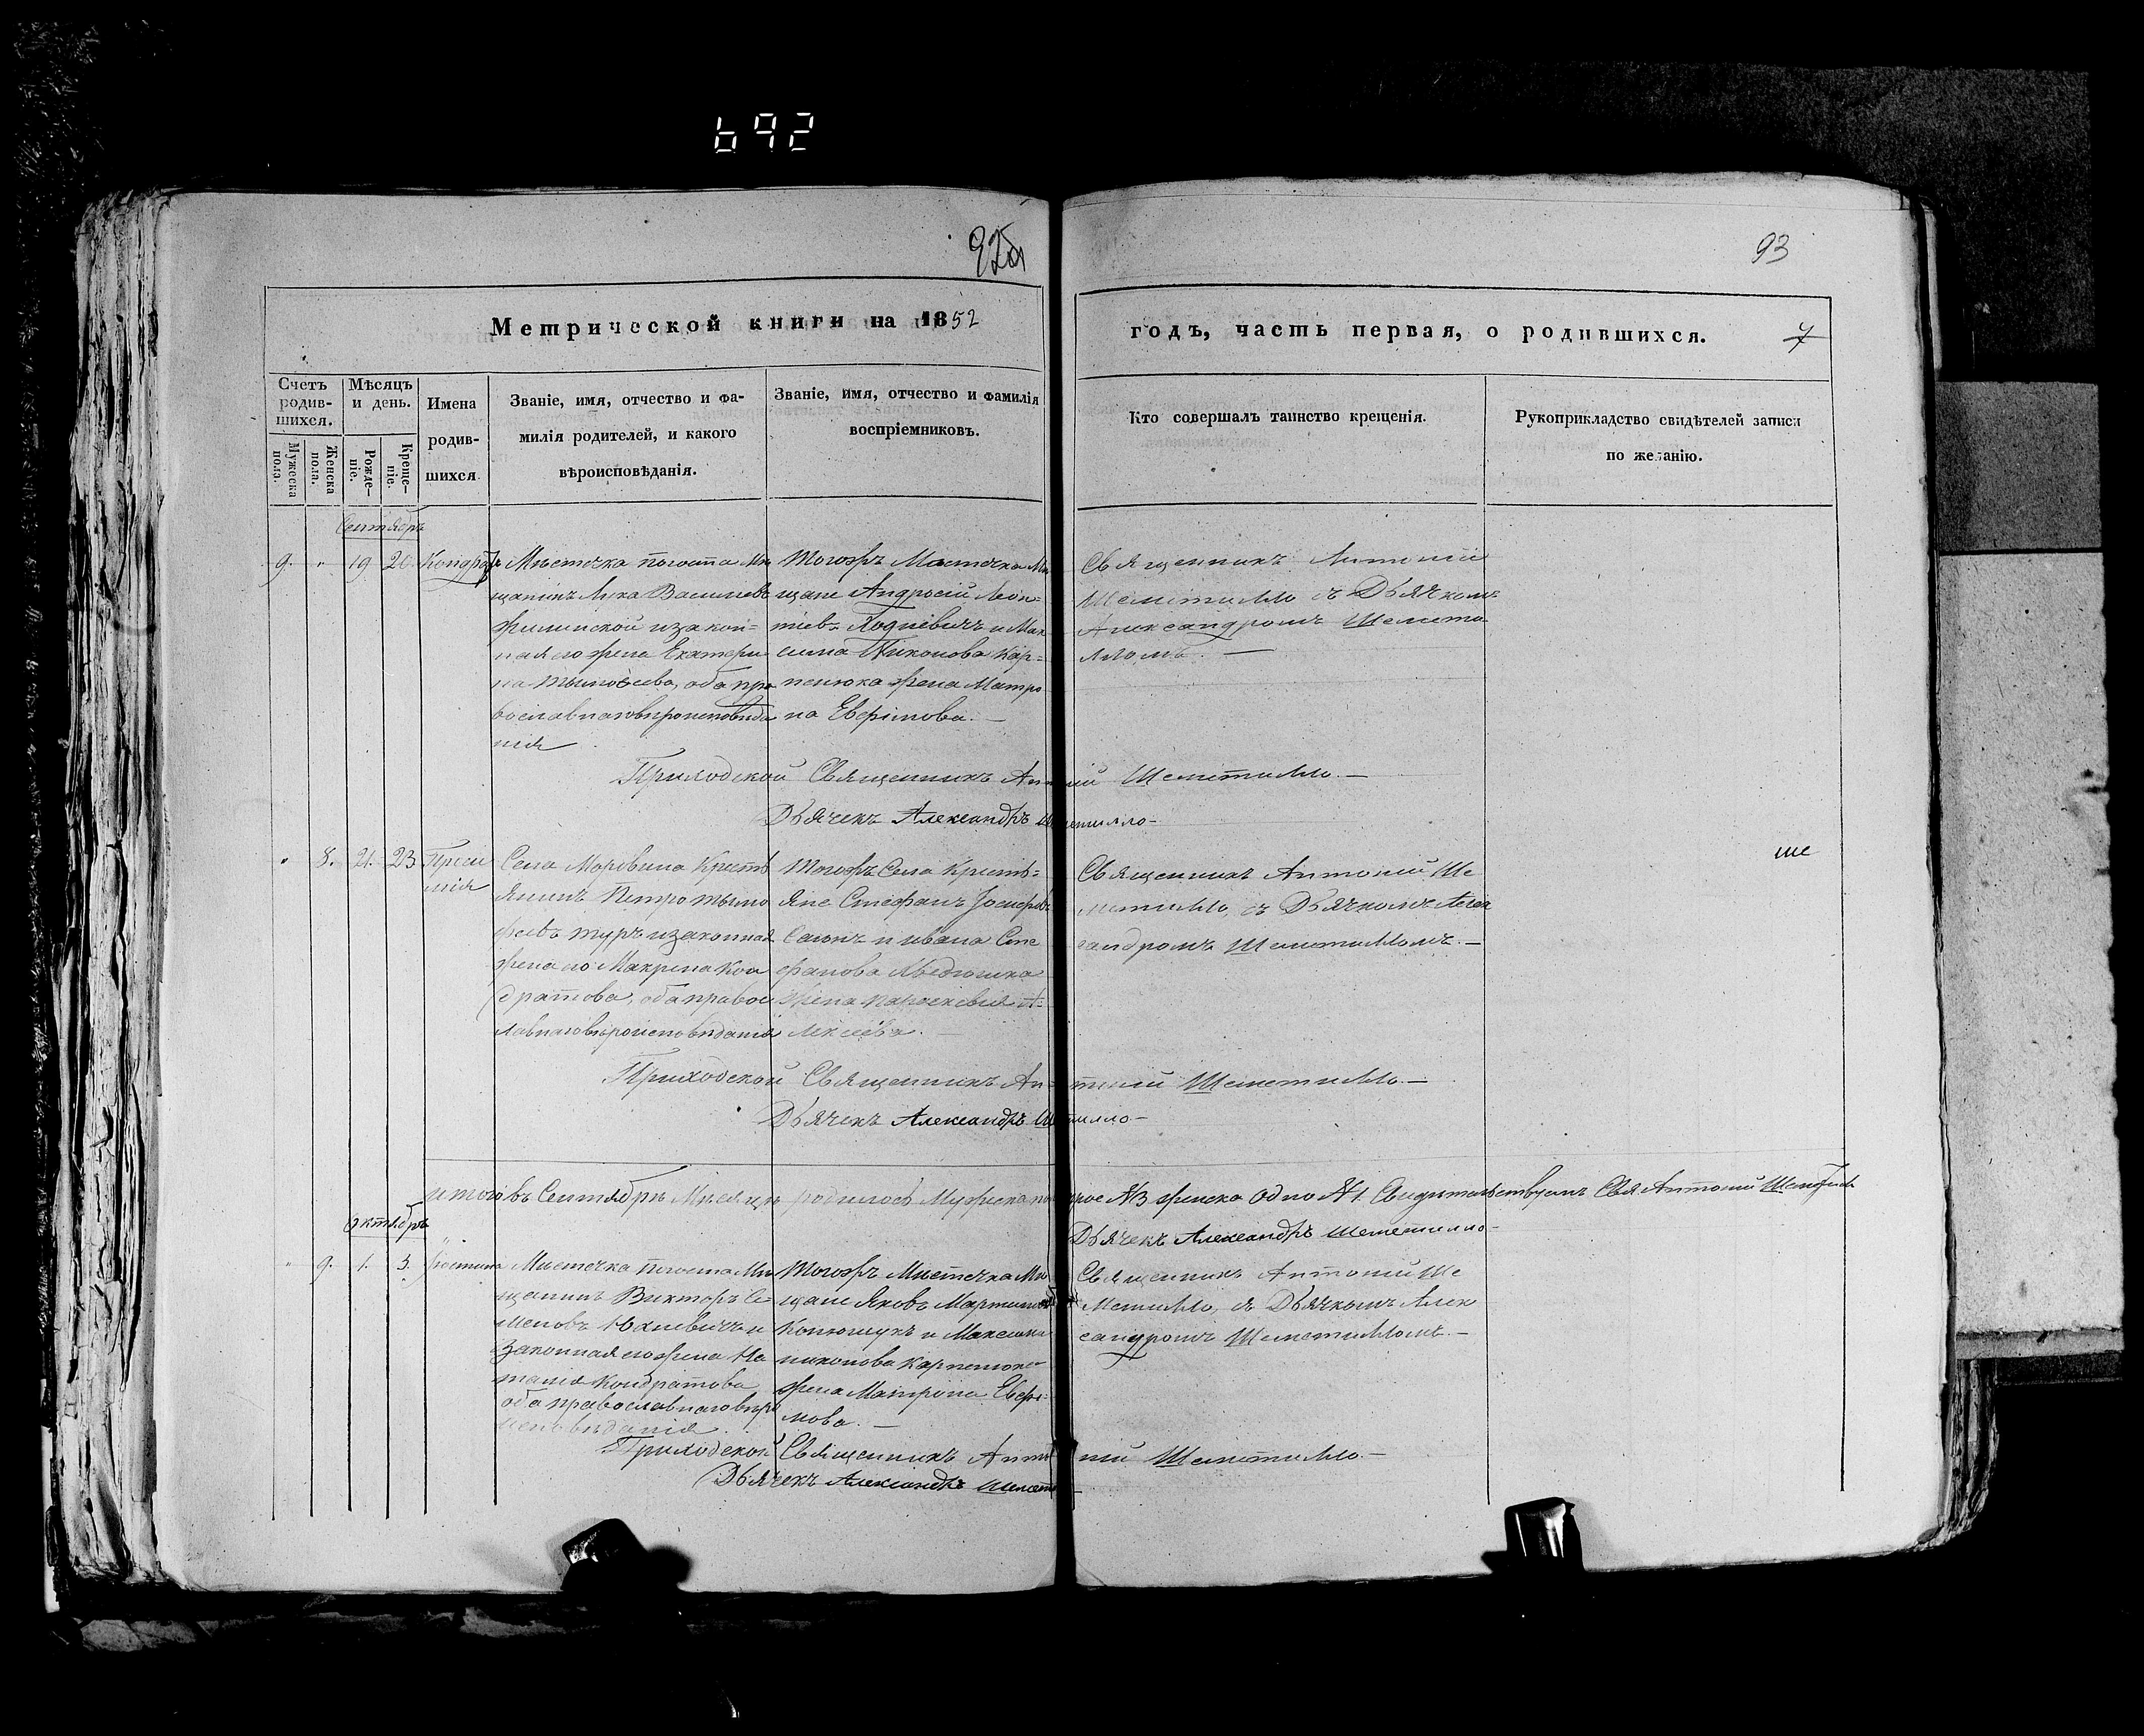 692
92об
93
Метрической книги на 1852
годъ, часть первая, о родившихся.
7
Счетъ родив-шихся.
Мѣсяцъ и день.
Имена родив-шихся
Званіе, имя, отчество и фа-
милія родителей, и какого
вѣроисповѣданія.
Званіе, имя, отчество и фамилія
воспріемниковъ.
Кто совершалъ таинство крещенія.
Рукоприкладство свидѣтелей записи
по желанію.
Мужеска пола.
Женска пола.
Рожде-ніе.
Креще-ніе.
Сентябрь
9. " 19 20 Кондратъ
Мѣстечка погоста Мѣ
щанинъ Лука Васильевъ
и закон=
ная его жена Екатери
на Тымоѳеева, оба пра
вославнаго вѣроисповѣда
нія
Тогожъ Мѣстечка Мѣ
щане Андрей Леон=
тіевъ Ходневичъ и Мак
сима Никонова Кар=
пенюка жена Матро
на Евфимова. —
Священникъ Антоній
Шеметилло съ Дьячкомъ
Александромъ Шемети
лломъ. —
Приходской Священникъ Антоній Шеметилло. —
Дьячекъ Александръ Шеметилло —
" 8. 21. 23
Села Моровина Кресть
янинъ Петро Тымо
феевъ Туръ и законная
жена его Макрина Кон
дратова, оба правос
лавнаго вѣроисповѣданія
Тогожъ Села Кресть=
яне Стефанъ Іосифовъ
и Ивана Сте
фанова
жена Параскевія А=
лексѣева. —
Священникъ Антоній Ше
метилло, съ Дьячкомъ Алек
сандромъ Шеметилломъ. —
ше
Приходской Священникъ Антоній Шеметилло. —
Дьячекъ Александръ Шеметилло —
Итого въ Сентябрѣ Мѣсяцѣ родилось Мужеска пола трое №3 женска одно №1. Свидѣтельствуемъ Свя Антоній Шеметилло
Дьячекъ Александръ Шеметилло —
Октябрь
" 9. 1. 3. Іюстина
Мѣстечка погоста Мѣ
щанинъ Викторъ Се
меновъ Юхневичъ и
законная его жена На
талія Кондратова
оба православнаго вѣро
исповѣданія.
Тогожъ Мѣстечка Мѣ
щане Яковъ Мартиновъ
Конюшукъ и Максима
Никонова Карпенюка
жена Матрона Евфи=
мова. —
Священникъ Антоній Ше
метилло, съ Дьячкомъ Алек
сандромъ Шеметилломъ. —
Приходской Священникъ Антоній Шеметилло. —
Дьячекъ Александръ Шеметилло